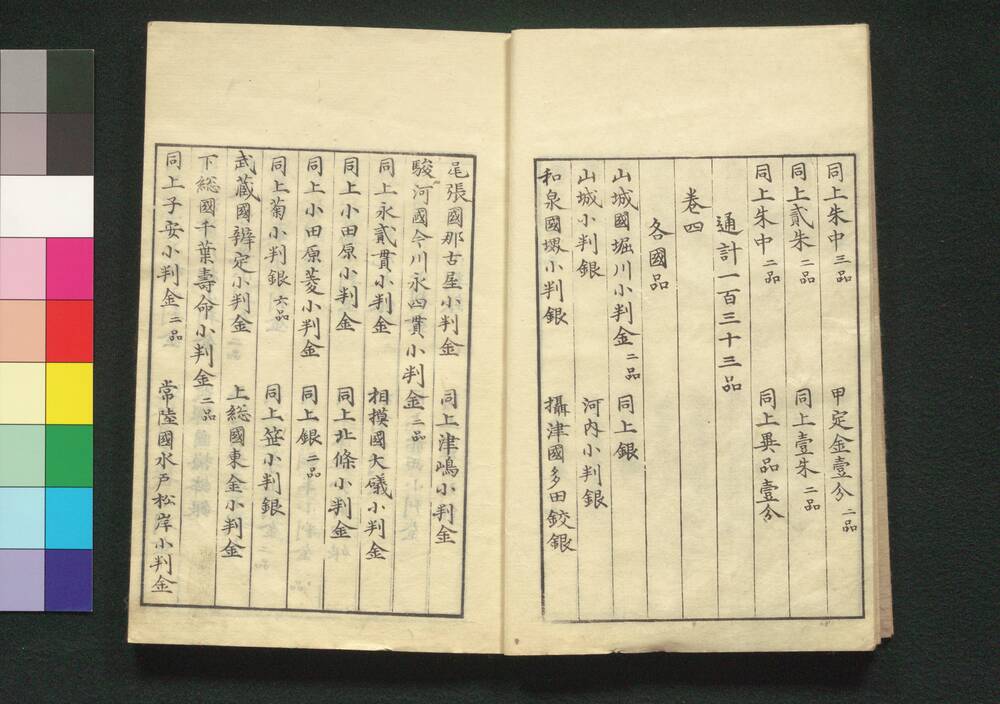 同上朱中三品 甲定金壹分二品
同上貳朱二品 同上壹朱二品
同上朱中二品 同上異品壹分
通計一百三十三品
巻四
各國品
山城國堀川小判金二品 同上銀
山城小判銀 河内小判銀
和泉國堺小判銀 攝津國多田鉸銀
尾張國那古屋小判金 同上津嶋小判金
駿河國今川永四貫小判金二品
同上永貳貫小判金 相摸國大礒小判金
同上小田原小判金 同上北條小判金
同上小田原菱小判金 同上銀二品
同上菊小判銀六品 同上笹小判銀
武蔵國辨定小判金 上総國東金小判金
下総國千葉壽命小判金二品
同上子安小判金二品 常陸國水戸松岸小判金